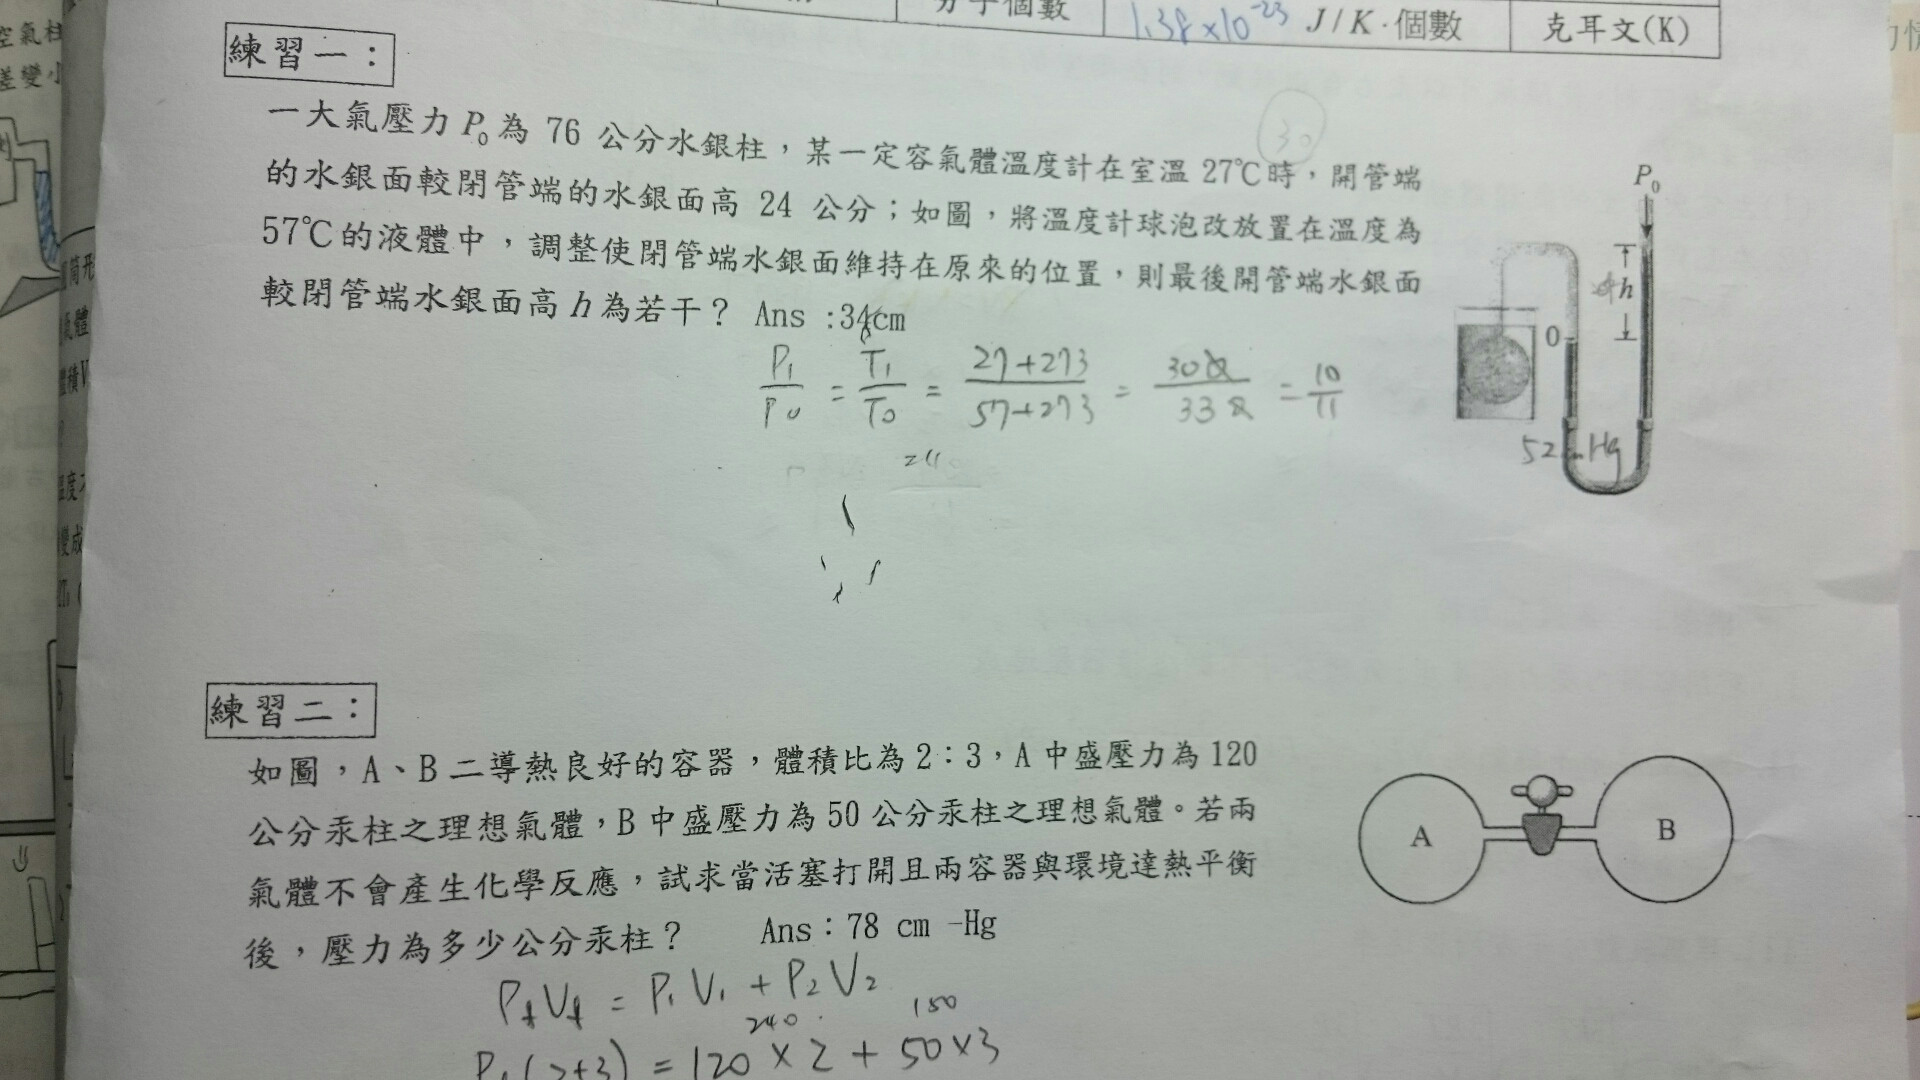 分子個數
1.38×10⁻²³ J/K·個數
克耳文(K)
空氣柱
差變小
練習一：
30
一大氣壓力 P₀ 為 76 公分水銀柱，某一定容氣體溫度計在室溫 27℃時，開管端
的水銀面較閉管端的水銀面高 24 公分；如圖，將溫度計球泡改放置在溫度為
57℃的液體中，調整使閉管端水銀面維持在原來的位置，則最後開管端水銀面
較閉管端水銀面高 h 為若干？ Ans :34cm
P₀
h
0
P₁/P₀ = T₁/T₀ = 27+273/57+273 = 300/330 = 10/11
練習二：
如圖，A、B 二導熱良好的容器，體積比為 2：3，A 中盛壓力為 120
公分汞柱之理想氣體，B 中盛壓力為 50 公分汞柱之理想氣體。若兩
氣體不會產生化學反應，試求當活塞打開且兩容器與環境達熱平衡
後，壓力為多少公分汞柱？ Ans：78 cm -Hg
A
B
PfVf = P₁V₁ + P₂V₂
240 150
Pf(2+3) = 120×2 + 50×3